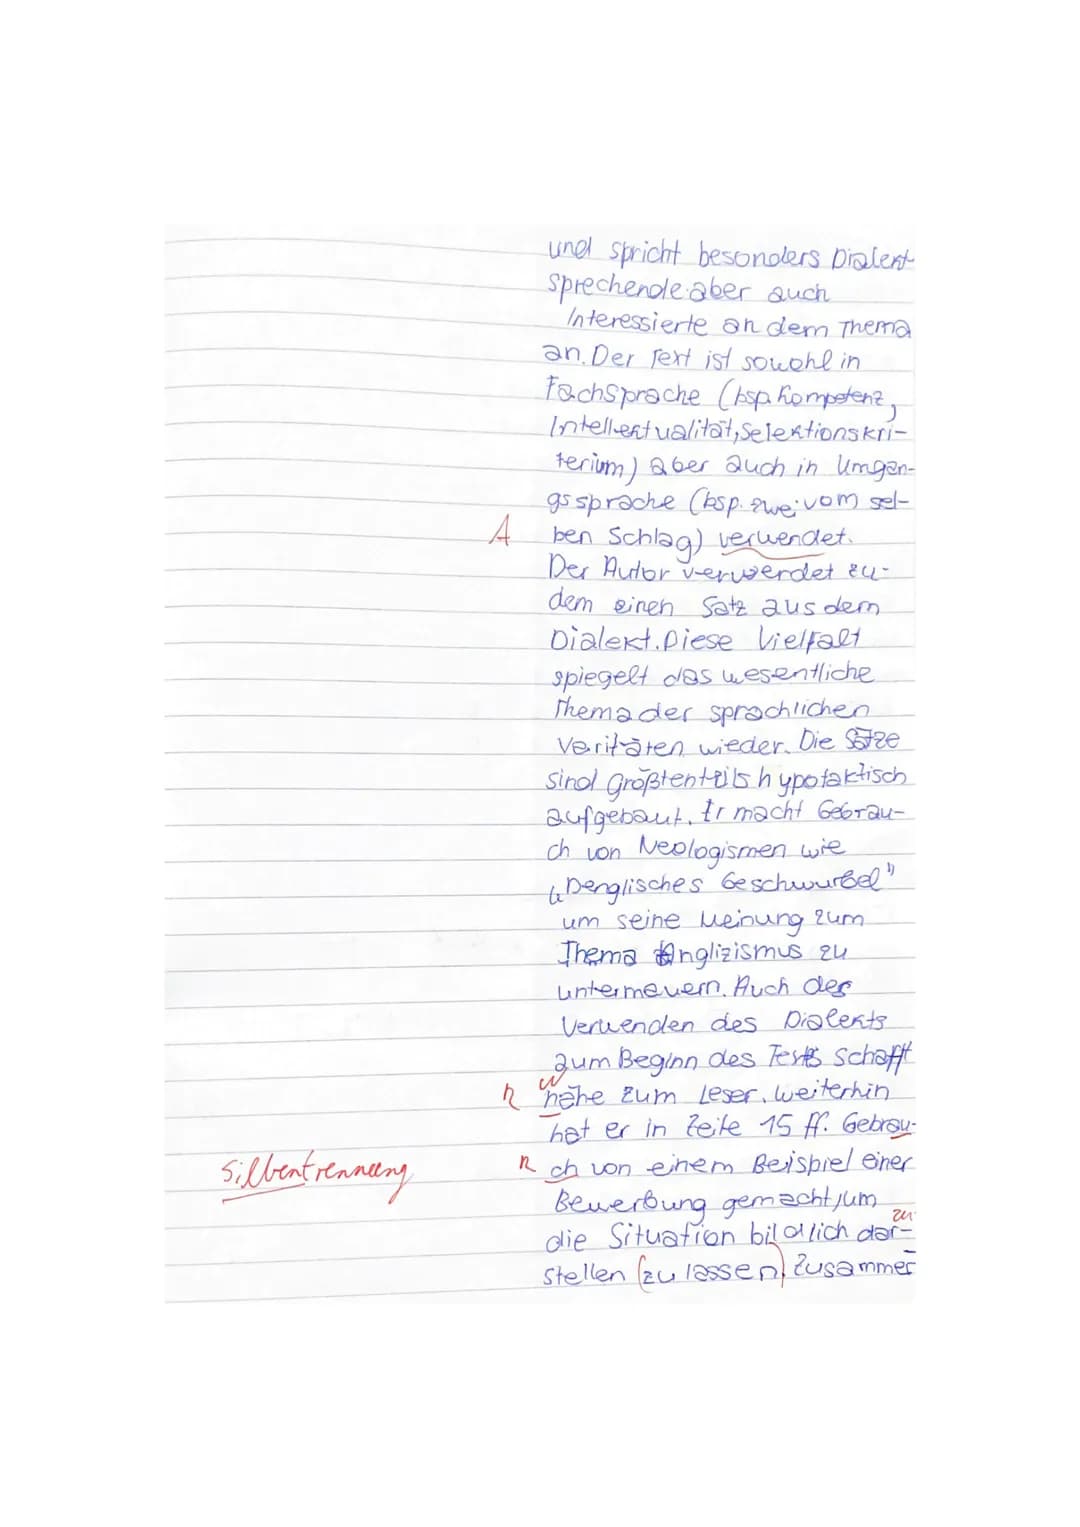 und spricht besonders Dialekt
sprechende aber auch
Interessierte an dem Thema
an. Der Text ist sowohl in
Fachsprache (bsp. Kompetenz,
Intellektualität, Selektionskri-
terium) aber auch in Umgan-
gssprache (bsp. zwei vom sel-
A ben Schlag) verwendet.
Der Autor verwendet zu-
dem einen Satz aus dem
Dialekt. Diese Vielfalt
spiegelt das wesentliche
Thema der sprachlichen
Varitäten wieder. Die Sätze
sind größtenteils hypotaktisch
aufgebaut. Er macht Gebrau-
ch von Neologismen wie
„Denglisches Geschwurbel"
um seine Meinung zum
Thema Anglizismus zu
untermauern. Auch das
Verwenden des Dialekts
zum Beginn des Texts schafft
R nähe zum Leser. Weiterhin
hat er in Zeile 15 ff. Gebrau-
Silbentrennung R ch von einem Beispiel einer
Bewerbung gemacht, um
die Situation bildlich dar- zu
stellen (zu lassen). Zusammen